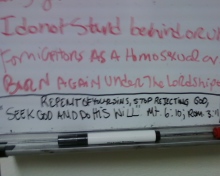 I do not Stand behind or
Fornicators As A Homosexual or
BORN AGAIN Under The Lordship
REPENT OF YOUR SINS, STOP REJECTING GOD,
SEEK GOD AND DO HIS WILL Mt. 6:10; Rom. 3:11